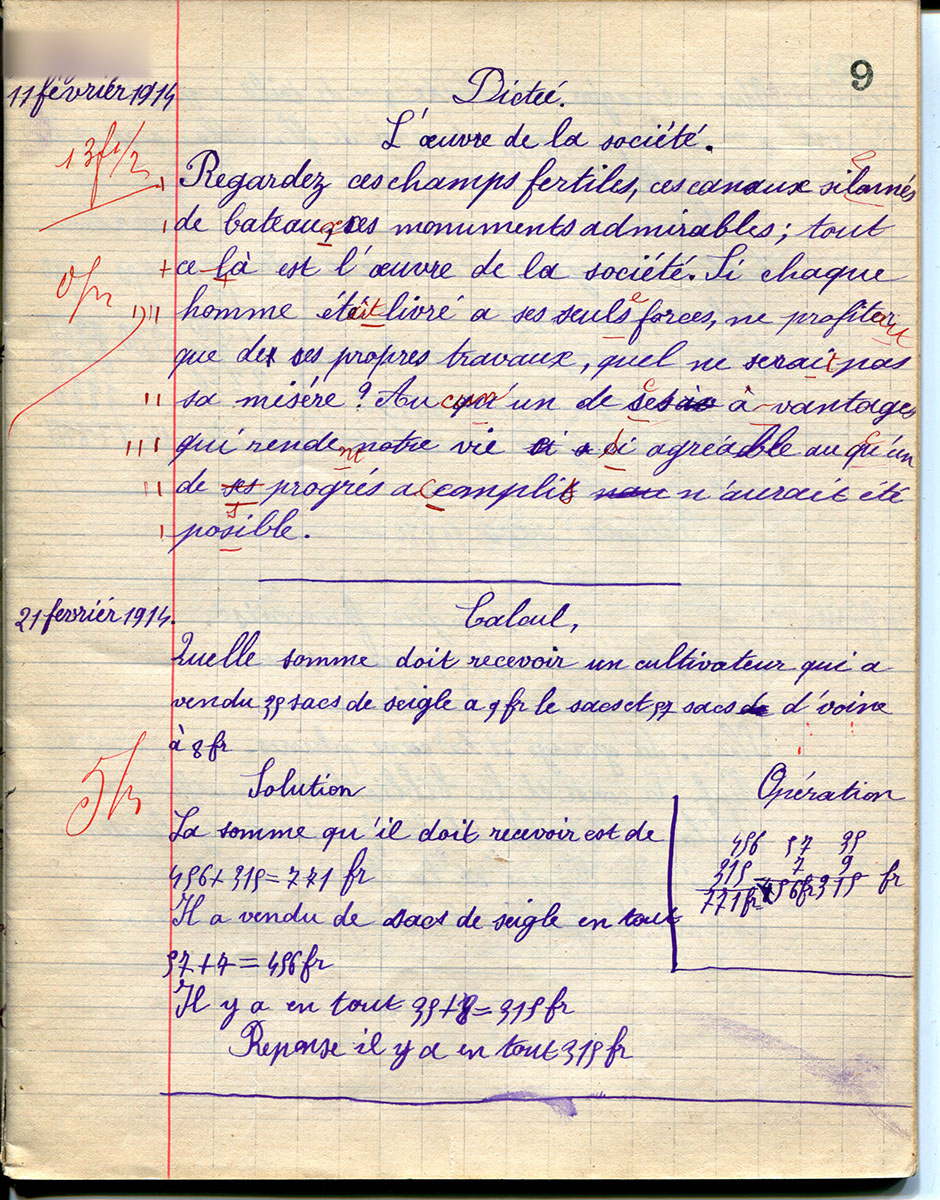 9
11 février 1914
Dictée.
L'œuvre de la société.
13f 1/2
Regardez ces champs fertiles, ces canaux silonnés
de bateaux ces monuments admirables ; tout
ce là est l'œuvre de la société. Si chaque
0
homme était livré a ses seuls forces, ne profiter
que de ses propres travaux, quel ne serait pas
sa misére ? Au qu'un de ses à vantages
qui rende notre vie si agréable au qu'un
de ses progrés a complit n'aurait été
posible.
21 fevriér 1914.
Calcul,
Quelle somme doit recevoir un cultivateur qui a
vendu 35 sacs de seigle a 9 fr le sacs et 57 sacs de d'voine
à 8 fr
5
Solution
Opération
La somme qu'il doit recevoir est de
456+315=771 fr
456 57 35
315 7 9
771fr 456fr 315 fr
Il a vendu de sacs de seigle en tout
57+7=456fr
Il y a en tout 35+8=315fr
Reponse il y a en tout 315 fr